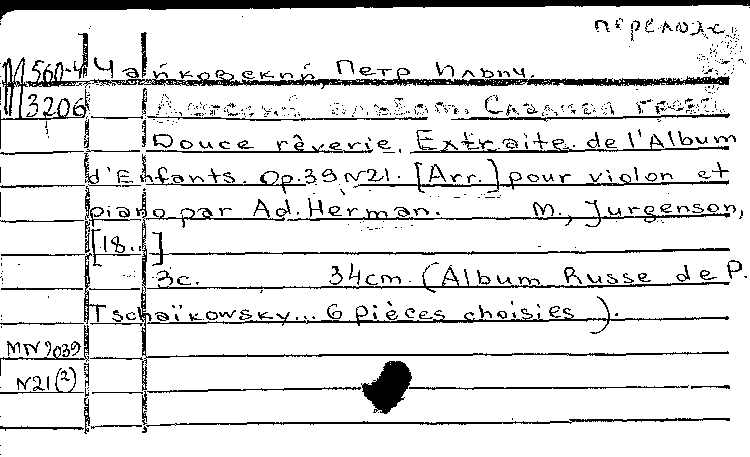 перелож.
М 560-4 Чайковский, Петр Ильич.
3206 Детский альбом. Сладкая греза.
Douce rêverie. Extraite de l'Album
d'Enfants. Op.39 N21. [Arr.] pour violon et
piano par Ad. Herman. M., Jurgenson,
[18..]
3с. 34cm. (Album Russe de P.
Tschaïkowsky... 6 pièces choisies).
N21(2)